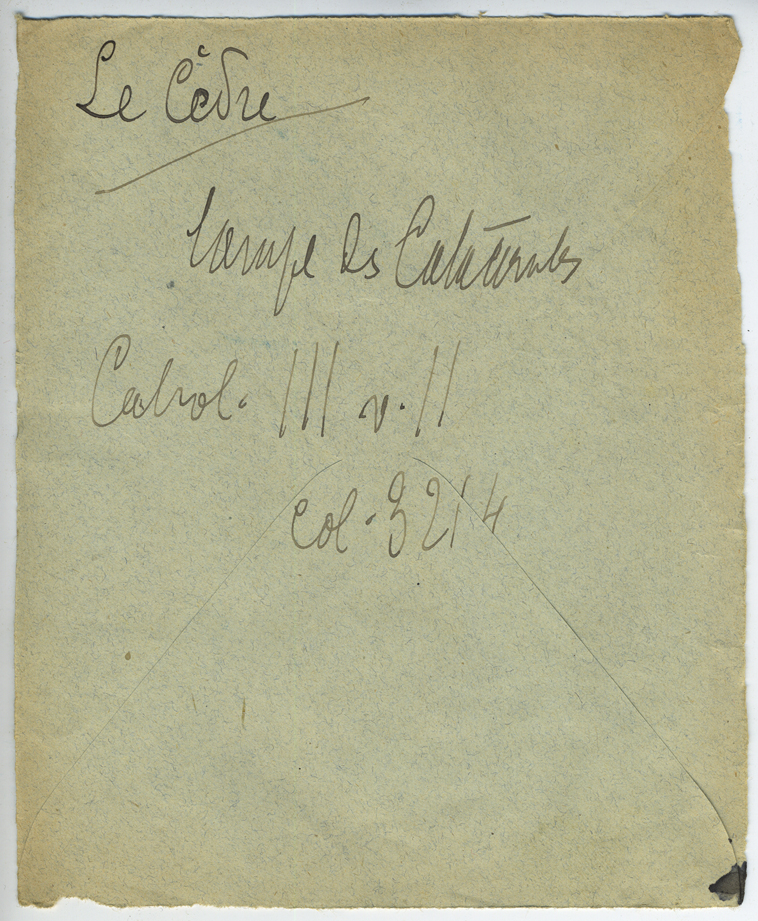 Le Cèdre
Lampe des Catacombes
Cabrol. III v. II
col. 3214